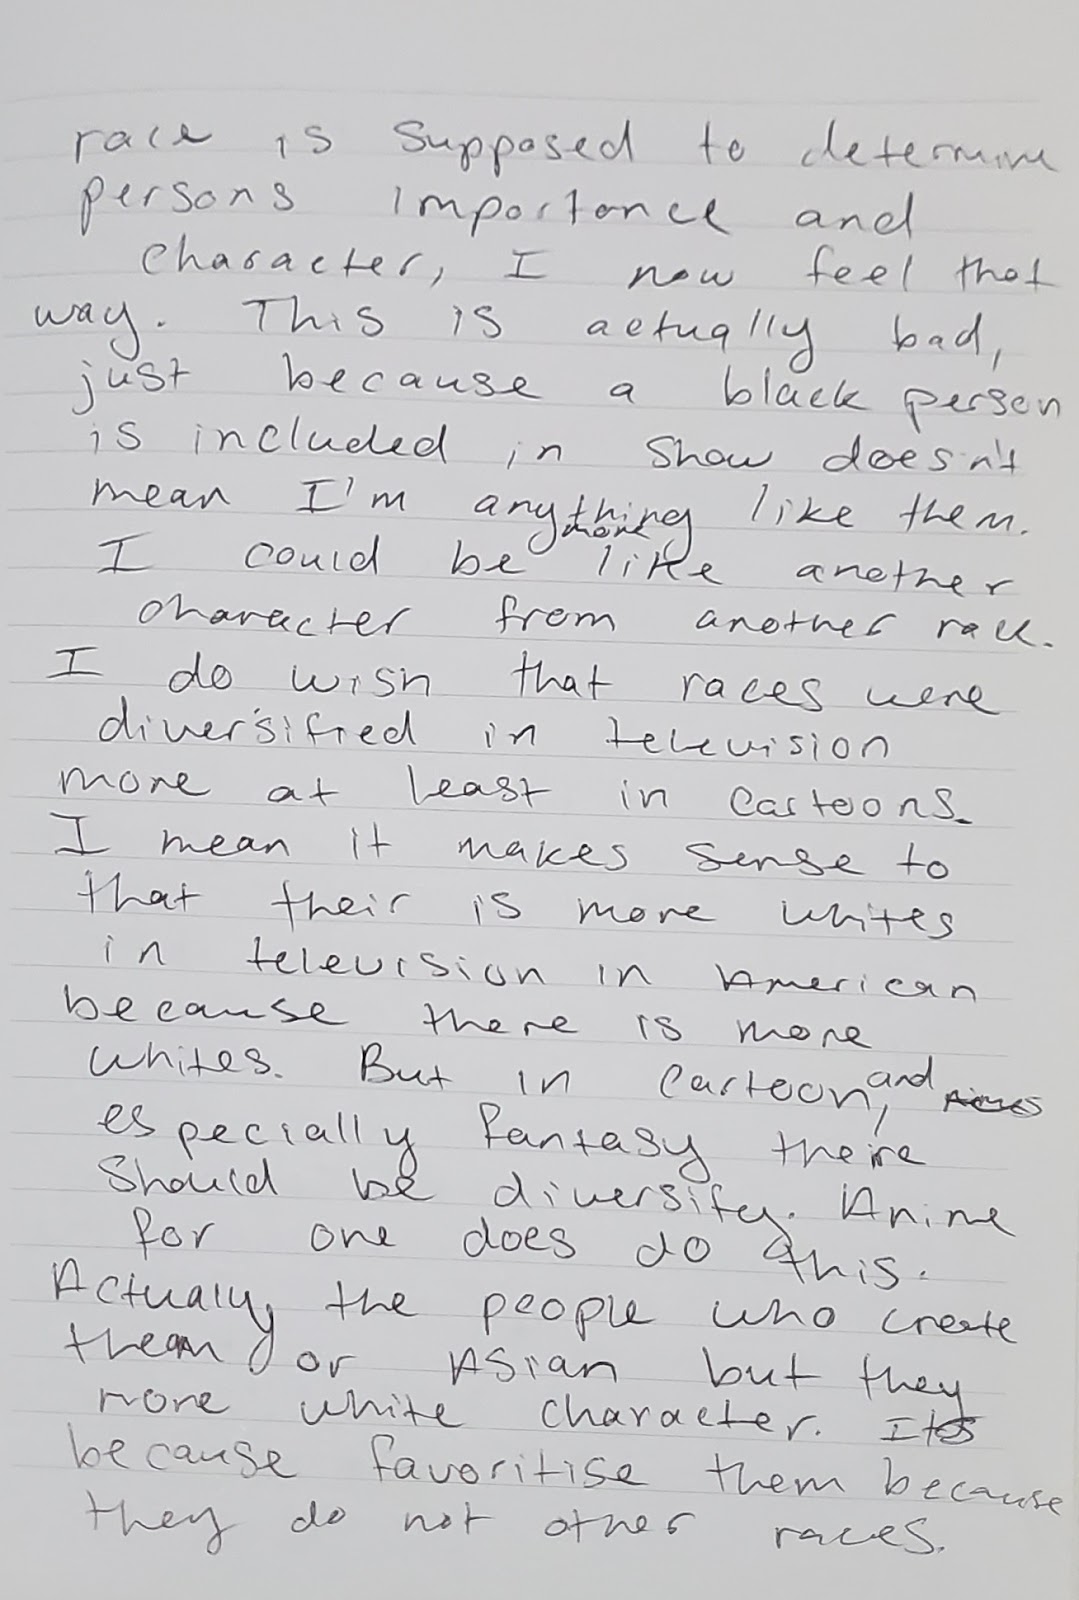 race is supposed to determine
persons importance and
character, I now feel that
way. This is actually bad,
just because a black person
is included in show doesn't
mean I'm anything like them.
I could be more like another
character from another race.
I do wish that races were
diversified in television
more at least in cartoons.
I mean it makes sense to
that their is more whites
in television in American
because there is more
whites. But in cartoon, and
especially fantasy there
should be diversity. Anime
for one does do this.
Actualy, the people who create
them or Asian but they
more white character. Its
because favoritise them because
they do not other races.